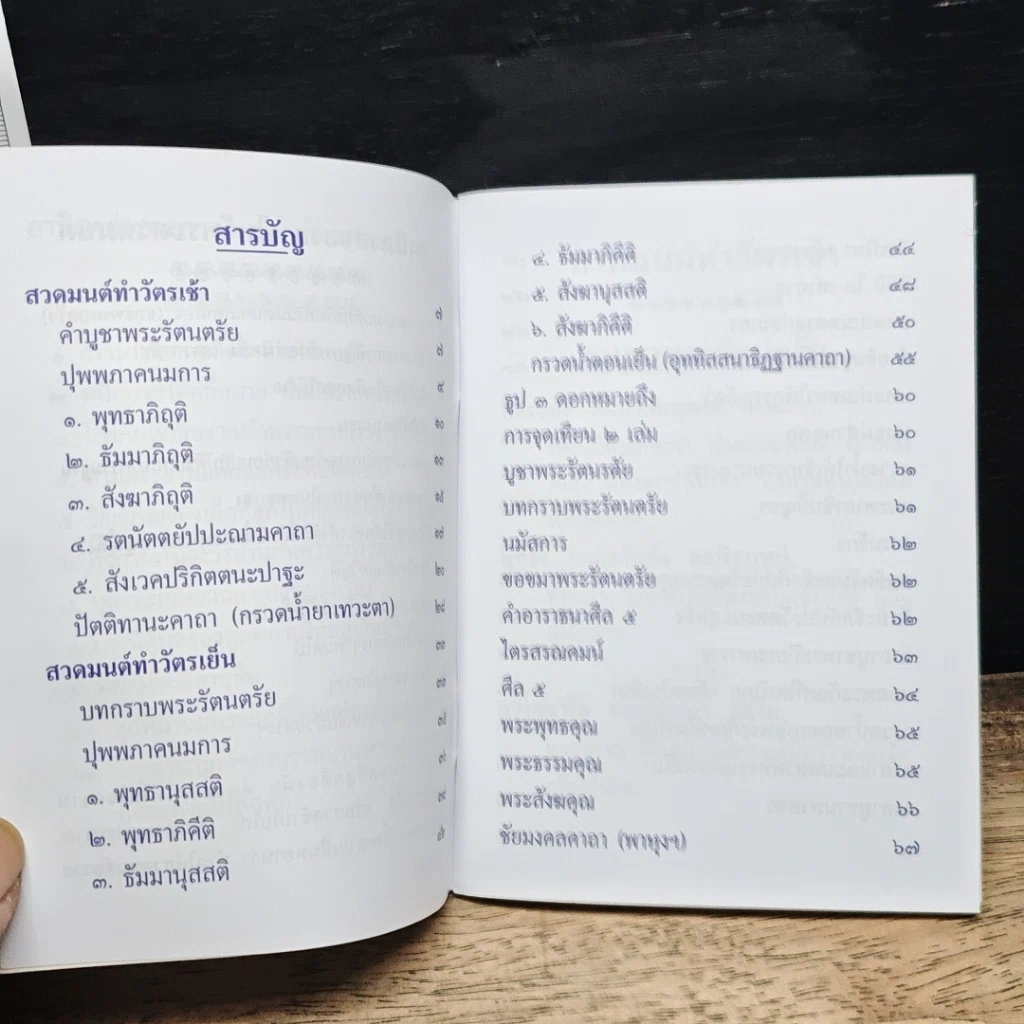 สารบัญ
สวดมนต์ทำวัตรเช้า
คำบูชาพระรัตนตรัย ๗
ปุพพภาคนมการ ๗
๑. พุทธาภิถุติ ๙
๒. ธัมมาภิถุติ
๓. สังฆาภิถุติ
๔. รตนัตตยัปปะณามคาถา
๕. สังเวคปริกิตตนะปาฐะ
ปัตติทานะคาถา (กรวดน้ำยาเทวะตา)
สวดมนต์ทำวัตรเย็น
บทกราบพระรัตนตรัย
ปุพพภาคนมการ
๑. พุทธานุสสติ
๒. พุทธาภิคีติ
๓. ธัมมานุสสติ
๔. ธัมมาภิคีติ ๔๔
๕. สังฆานุสสติ ๔๘
๖. สังฆาภิคีติ ๕๐
กรวดน้ำตอนเย็น (อุททิสสนาธิฏฐานคาถา) ๕๕
ธูป ๓ ดอกหมายถึง ๖๐
การจุดเทียน ๒ เล่ม ๖๐
บูชาพระรัตนรตัย ๖๑
บทกราบพระรัตนตรัย ๖๑
นมัสการ ๖๒
ขอขมาพระรัตนตรัย ๖๒
คำอาราธนาศีล ๕ ๖๒
ไตรสรณคมน์ ๖๓
ศีล ๕ ๖๔
พระพุทธคุณ ๖๕
พระธรรมคุณ ๖๕
พระสังฆคุณ ๖๖
ชัยมงคลคาถา (พาหุงฯ) ๖๗